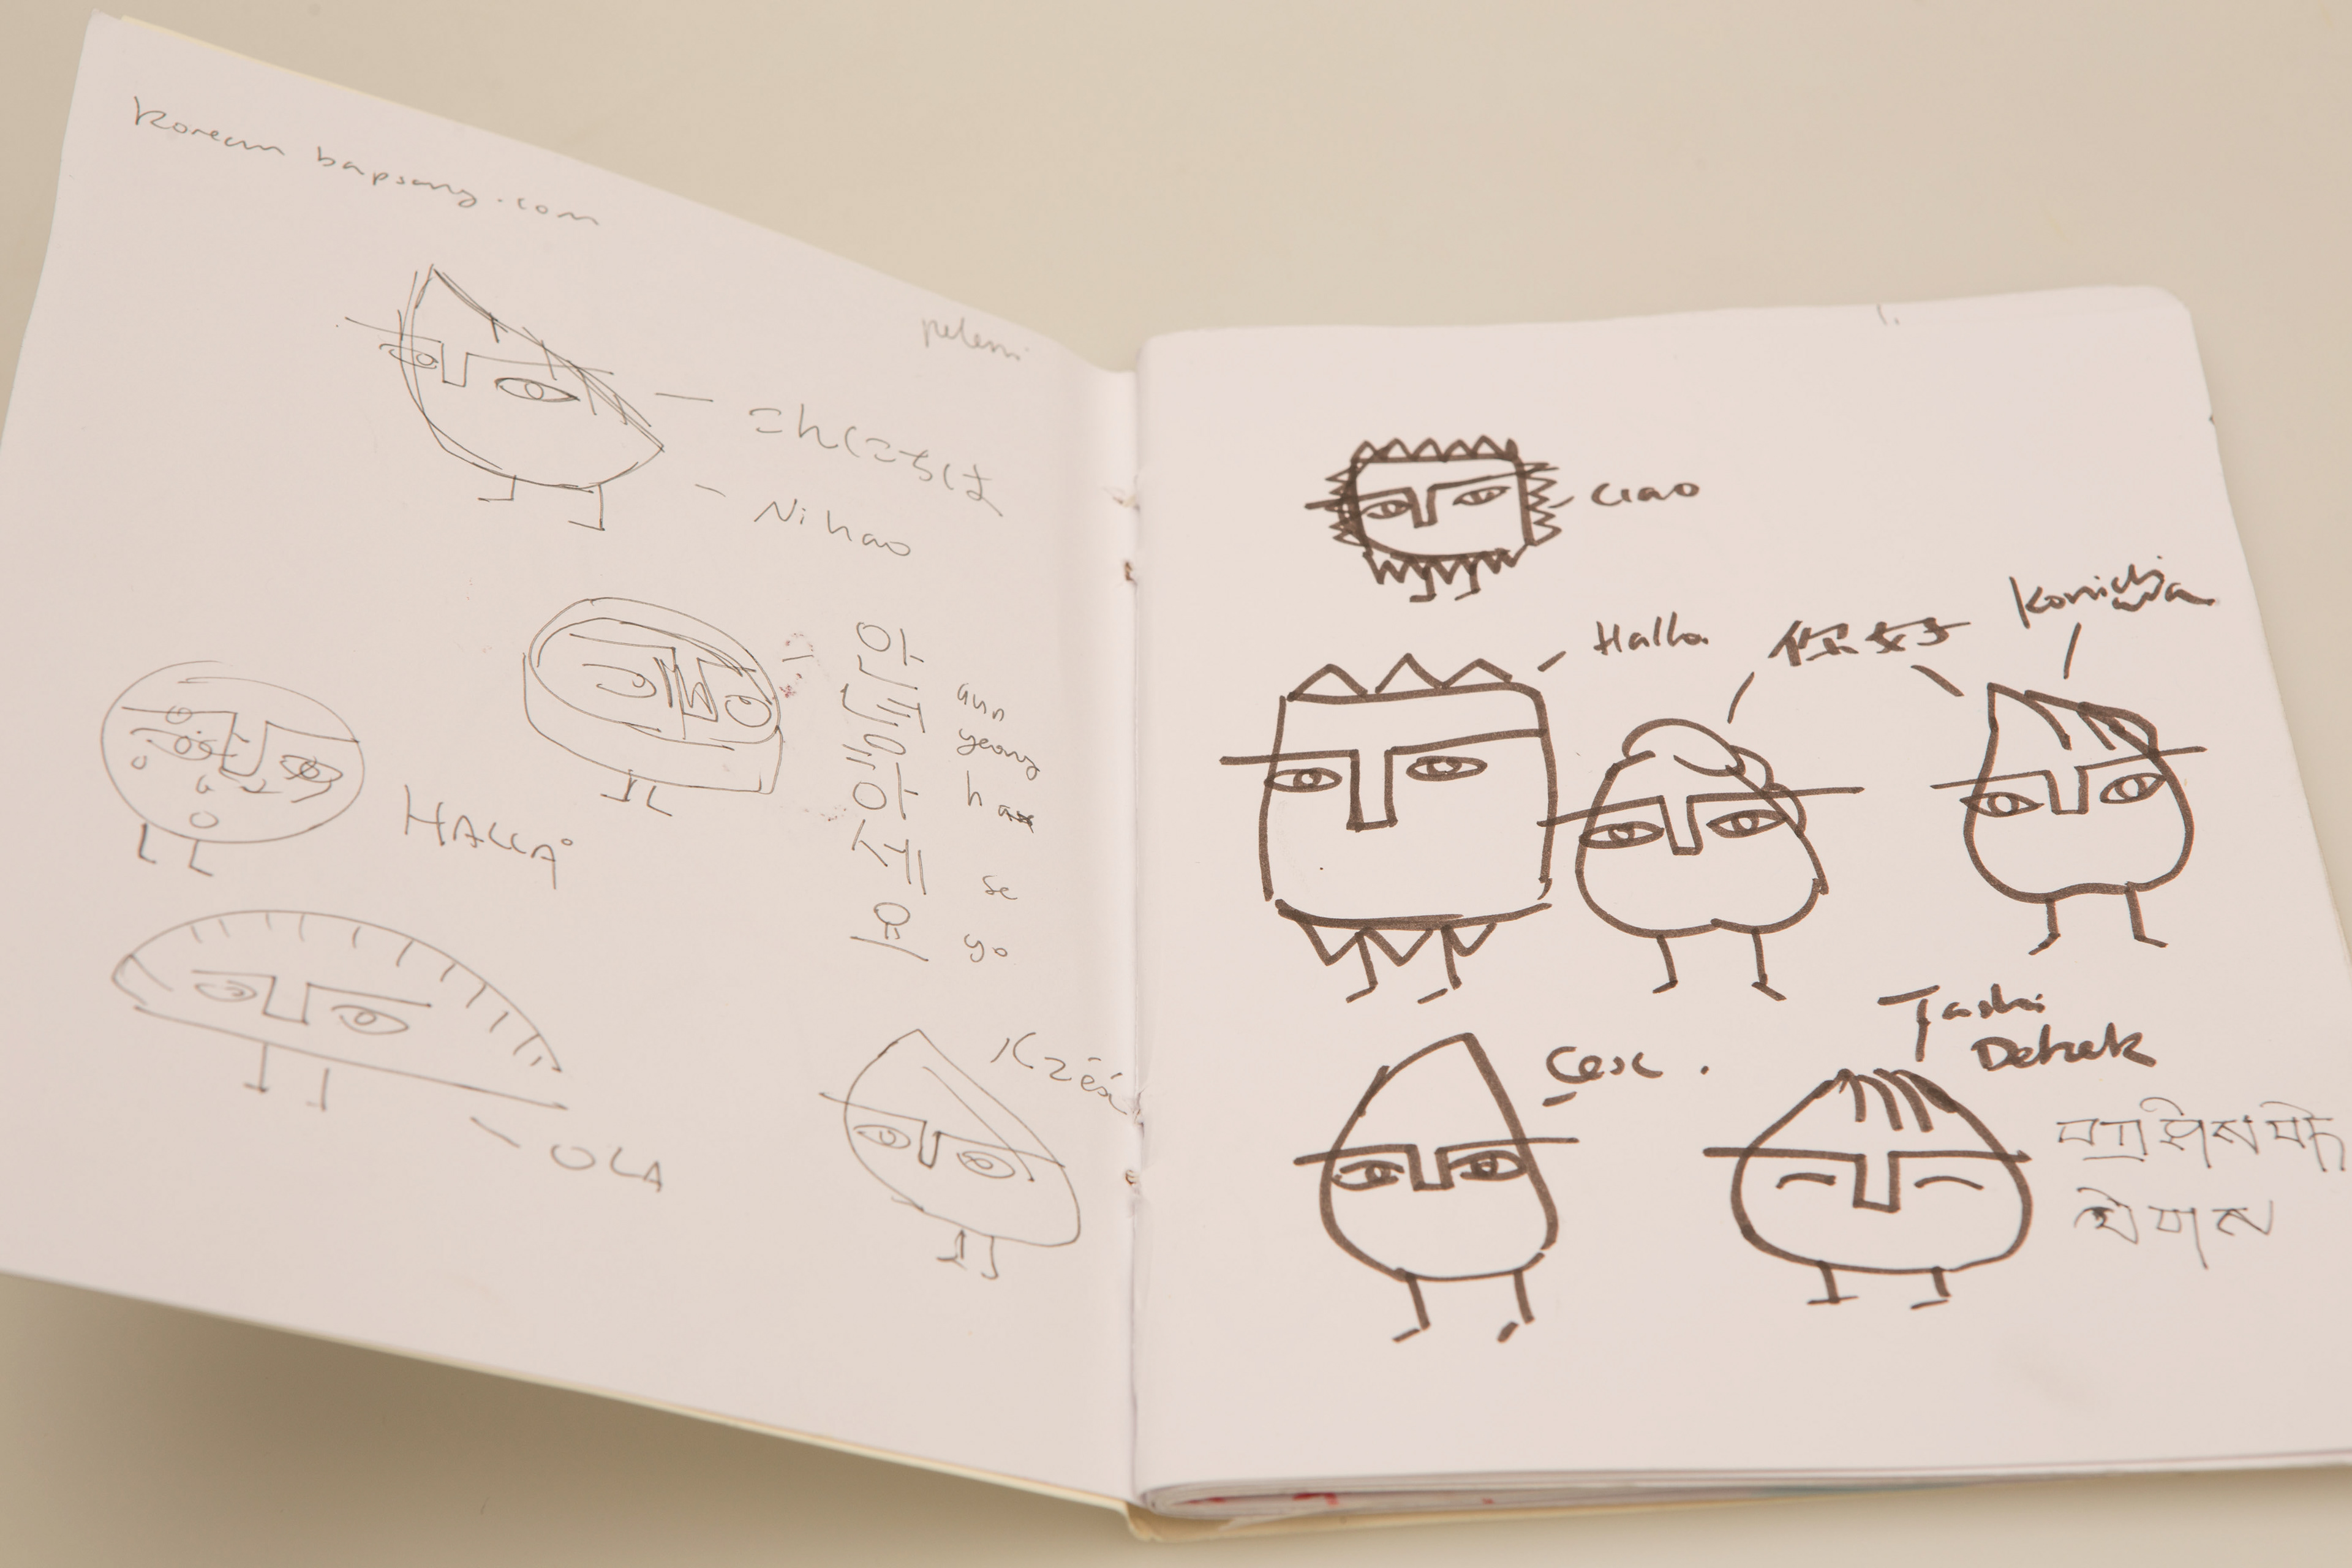 Korean bapsang.com
pelemi
こんにちは
Ni hao
안
녕
하
세
요
aun
yeong
ha
se
yo
HALLÅ
OLA
Ciao
Halla
你好
Konichiwa
Cesc.
Tashi
Delek